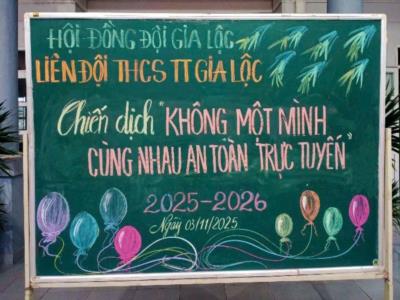 HỘI ĐỒNG ĐỘI GIA LỘC
LIÊN ĐỘI THCS TT GIA LỘC
Chiến dịch "KHÔNG MỘT MÌNH
CÙNG NHAU AN TOÀN TRỰC TUYẾN"
2025-2026
Ngày 03/11/2025